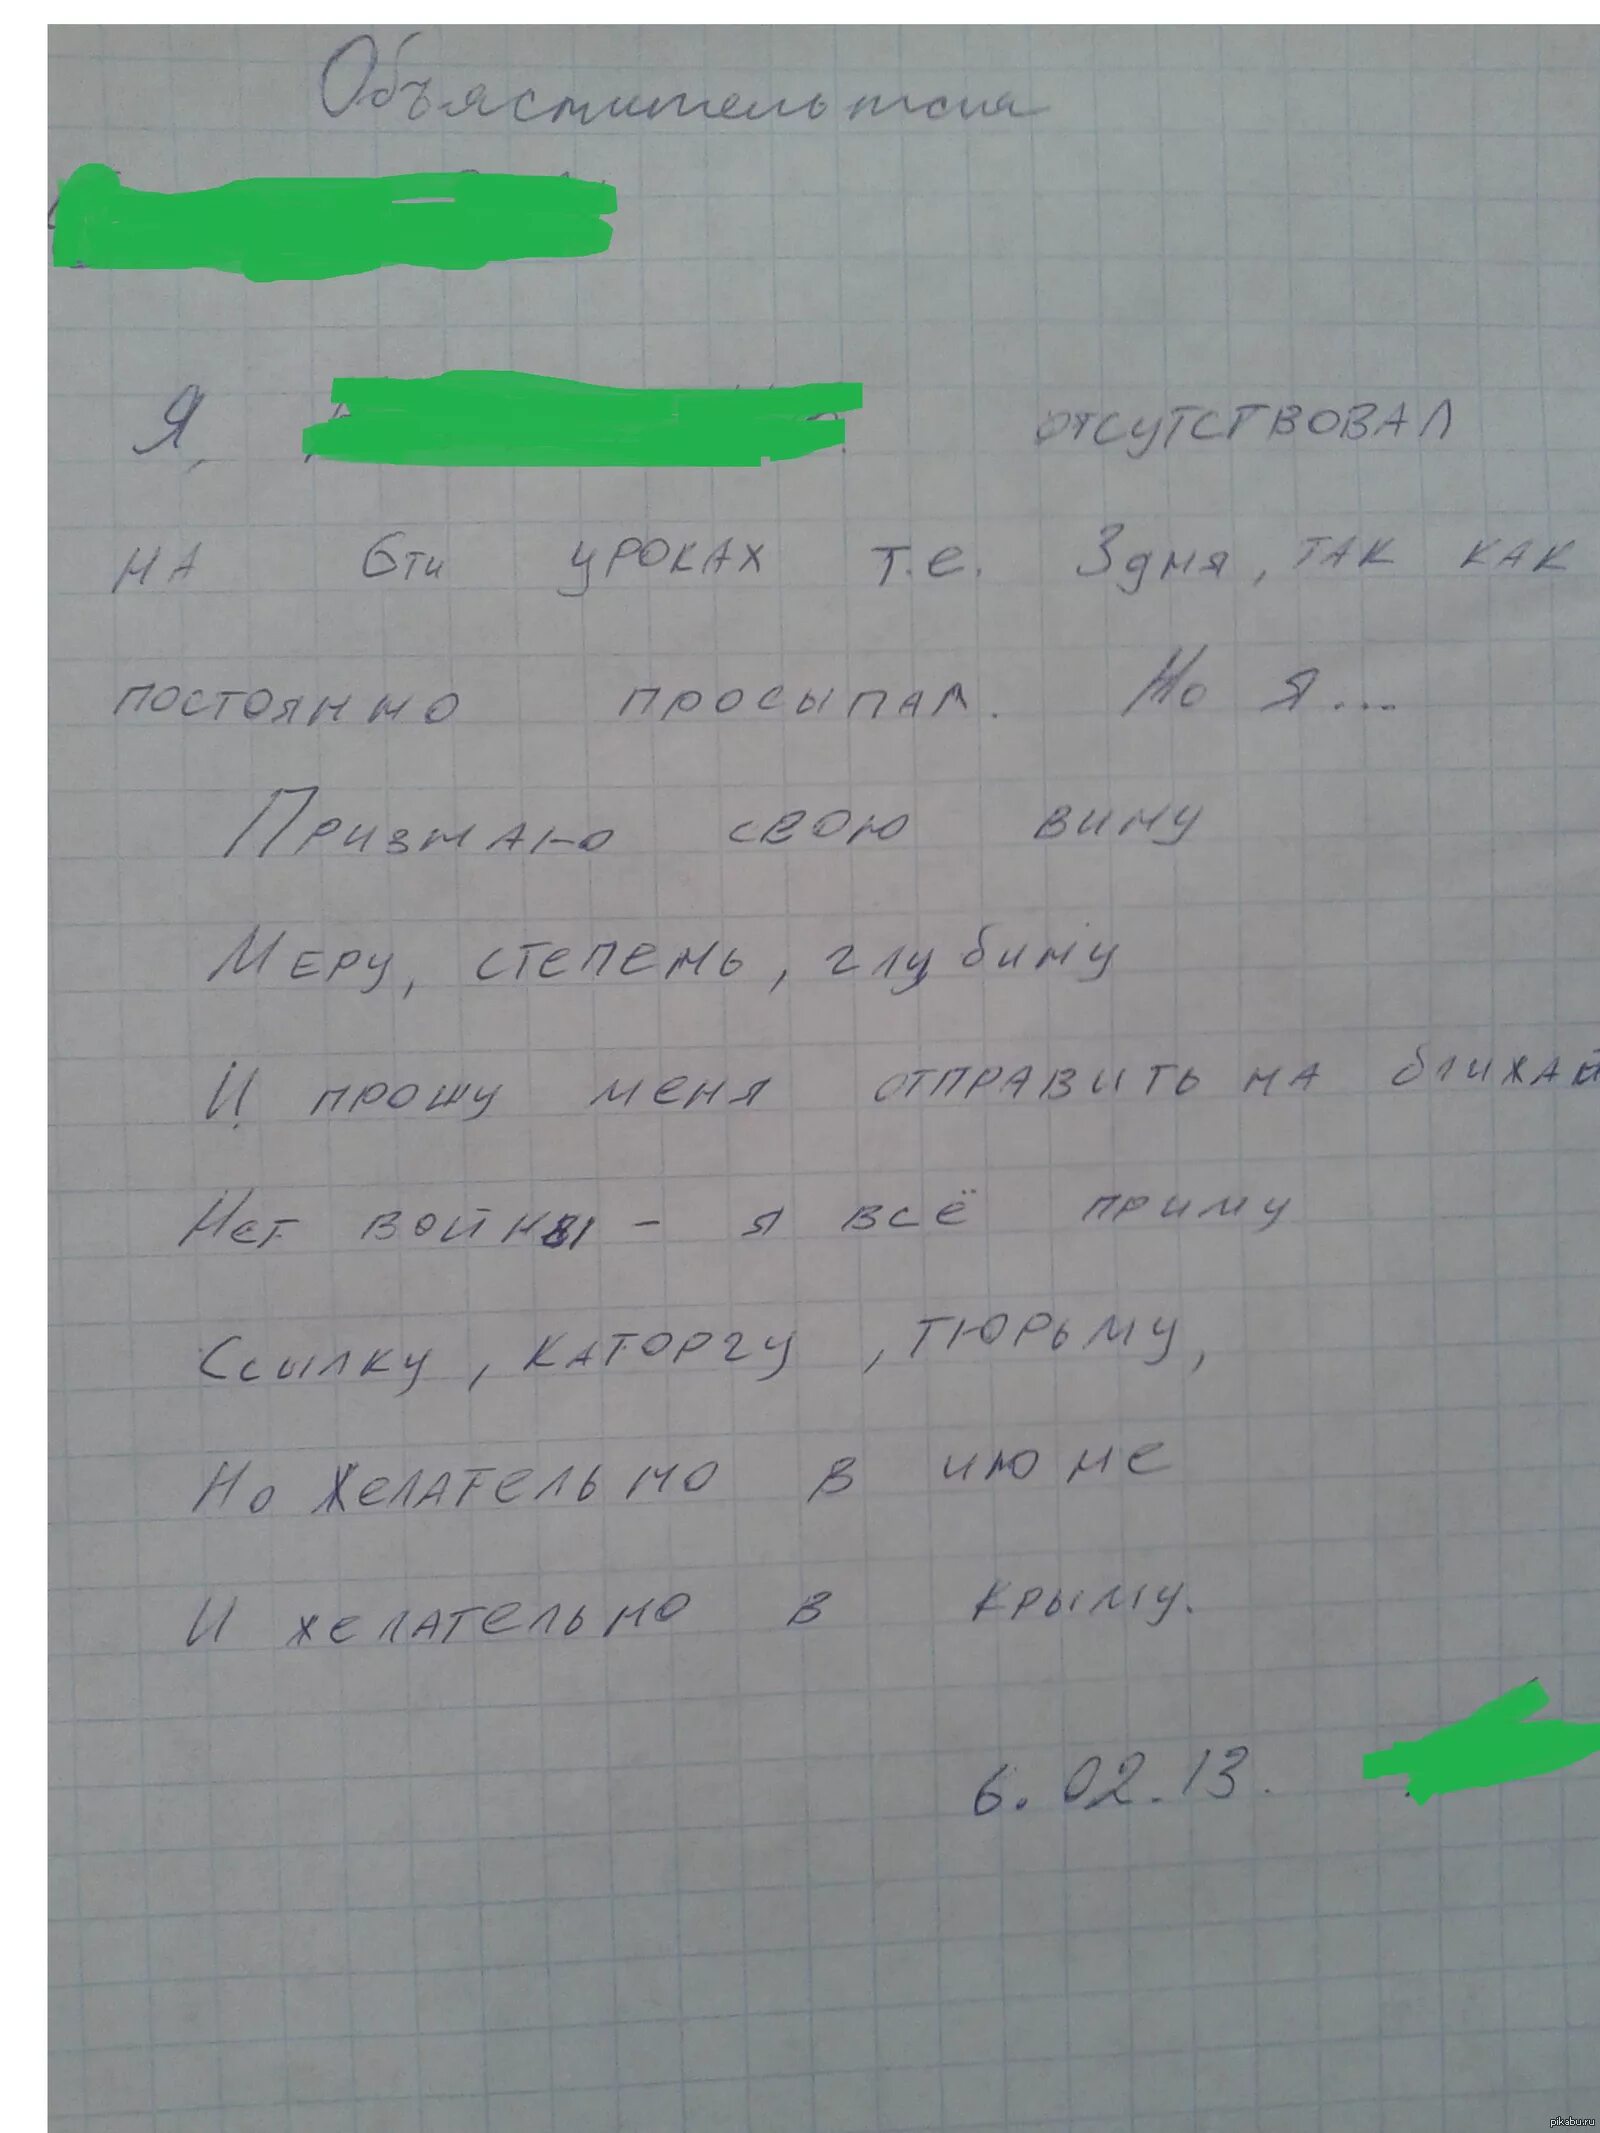 Объяснительная
Я, отсутствовал
на 6ти уроках т.е. 3 дня, так как
постоянно просыпал. Но я...
Признаю свою вину
Меру, степень, глубину
И прошу меня отправить на ближай
Нет войны - я всё приму
Ссылку, каторгу, тюрьму,
Но желательно в июне
И желательно в крыму.
6.02.13.
pikabu.ru